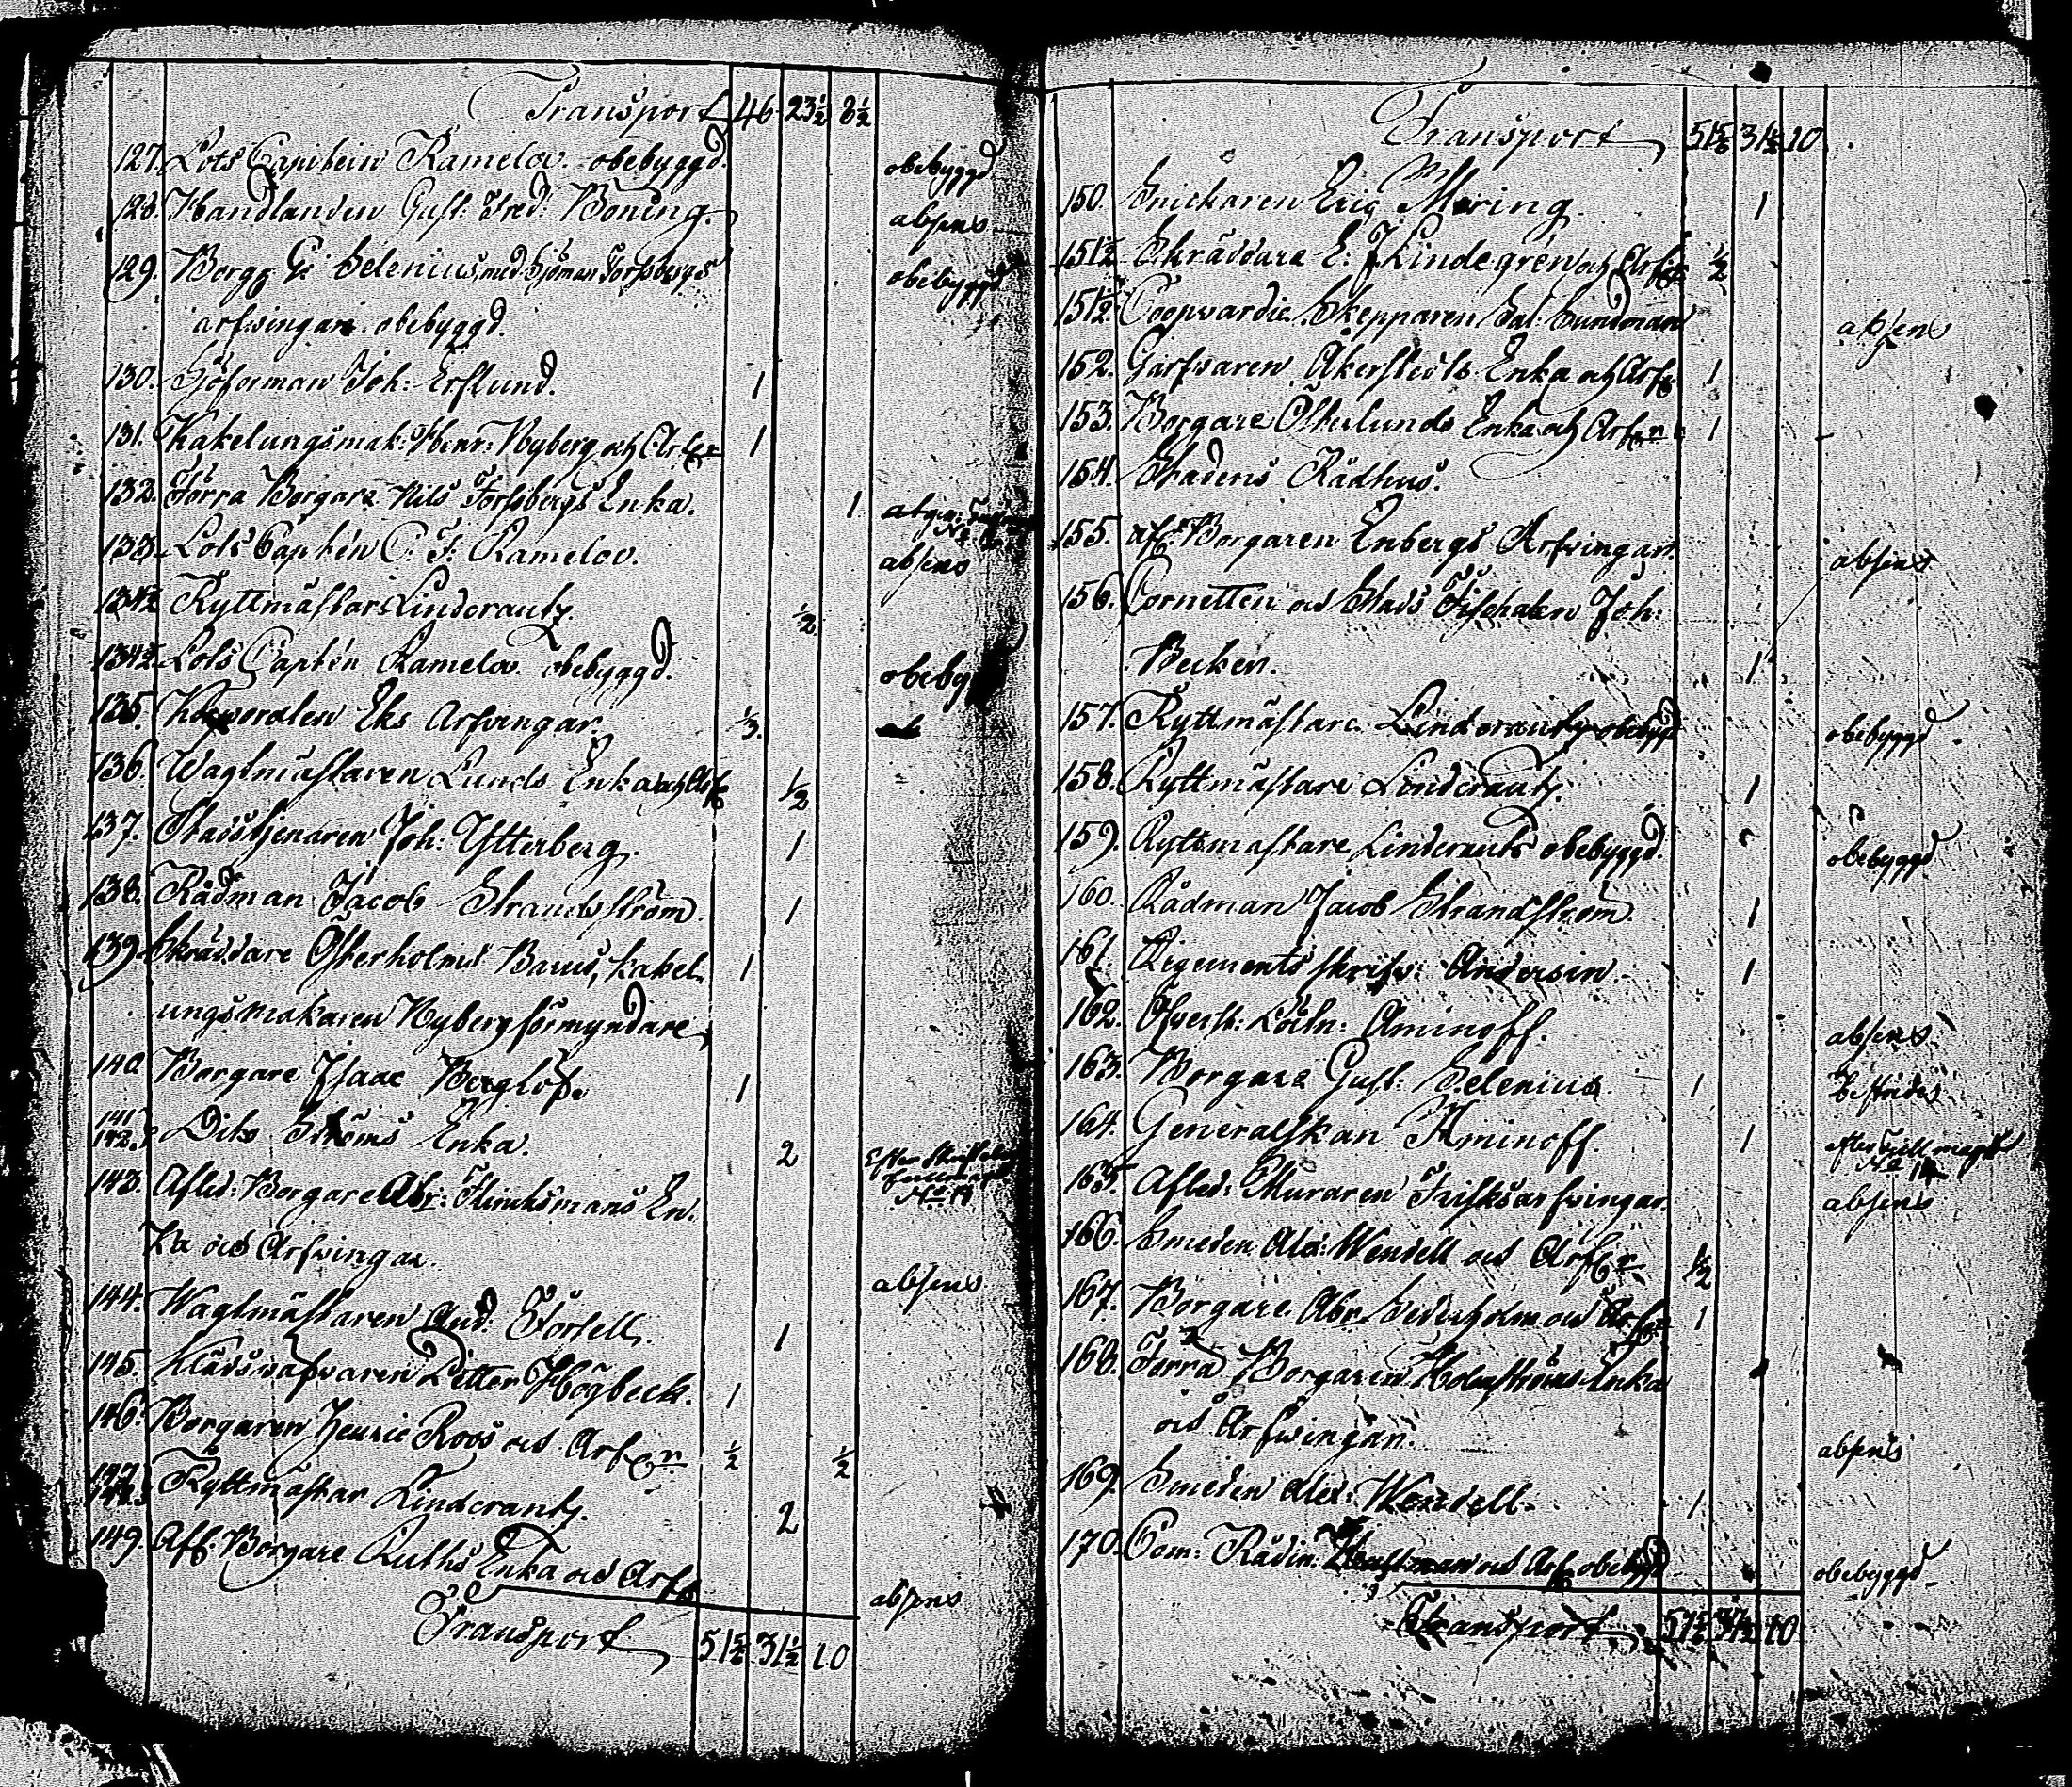 Transport 46 23½ 8½
127. Lots Capitein Ramelov. obebyggd. obebyggd
128. Handlanden Gust: Fred: Boning. absens
129. Borg: G: Selenius, med Sjöman Forssbergs obebyggd
arfvingar obebyggd.
130. Sjöforman Joh: Erslund. 1
131. Kakelungsmak: Henr: Nyberg och Arf:r 1
132. Förra Borgare Nils Forssbergs Enka. 1
133. Lots Captén C: F: Ramelov. absens
134½ Ryttmästar Linderantz. ½
134½ Lots Captén Ramelov obebyggd. obeby
135. Eks Arfvingar. ⅓.
136. Wagtmästaren Lunds Enka och Arf ½
137. Stadstjenaren Joh: Ytterberg. 1
138. Rådman Jacob Strandström. 1
139. Skräddare Österholms Barns, Kakel- 1
ungsmakaren Nyberg förmyndare
140. Borgare Isaac Berglöf. 1
141
142. Dito Ströms Enka. 2 Efter
143. Afled: Borgare Abr: Flincksmans En-
ka och Arfvingar. absens
144. Wagtmästaren And: Forsell. 1
145. Klädsväfvaren Petter Högbeck. 1
146. Borgaren Henric Roos och Arf:n ½ ½
147
148. Ryttmästar Linderantz. 2
149. Afl. Borgare Ruths Enka och Arf absens
Transport 51⅚ 31½ 10
Transport 51⅚ 31½ 10
150. Snickaren Eric Moring. 1
151½ Skräddare E: J Lindegrén och Arf ½
151½ Coopvardie Skepparen Sal: Sundman absens
152. Garfvaren Åkerstedts Enka och Arf 1
153. Borgare Österlunds Enka och Arf:n 1
154. Stadens Rådhus.
155. afl: Borgaren Enbergs Arfvingar absens
156. Cornetten och Stads Fischalen Joh:
Becker. 1
157. Ryttmästare Linderantz obebygd obebyggd
158. Ryttmästare Linderantz. 1
159. Ryttmästare Linderants obebyggd. obebyggd
160. Rådman Jacob Strandström. 1
161. Regementsskrifv: Andersin 1
162. Öfverst: Löitn: Aminoff. absens
163. Borgare Gust: Selenius 1 bestrides
164. Generalskan Aminoff. 1 efter
165. Afled: Muraren Frisks arfvingar. absens
166. Smeden Alex: Wendell och Arf:r ½
167. Borgare Abr. Sederholm och Arf:r 1
168. Förra Borgaren Holmströms Enka
och Arfvingar. absens
169. Smeden Alex: Wendell. 1
170. Com: Rådm: och Arf obebygd obebyggd
Transport 10